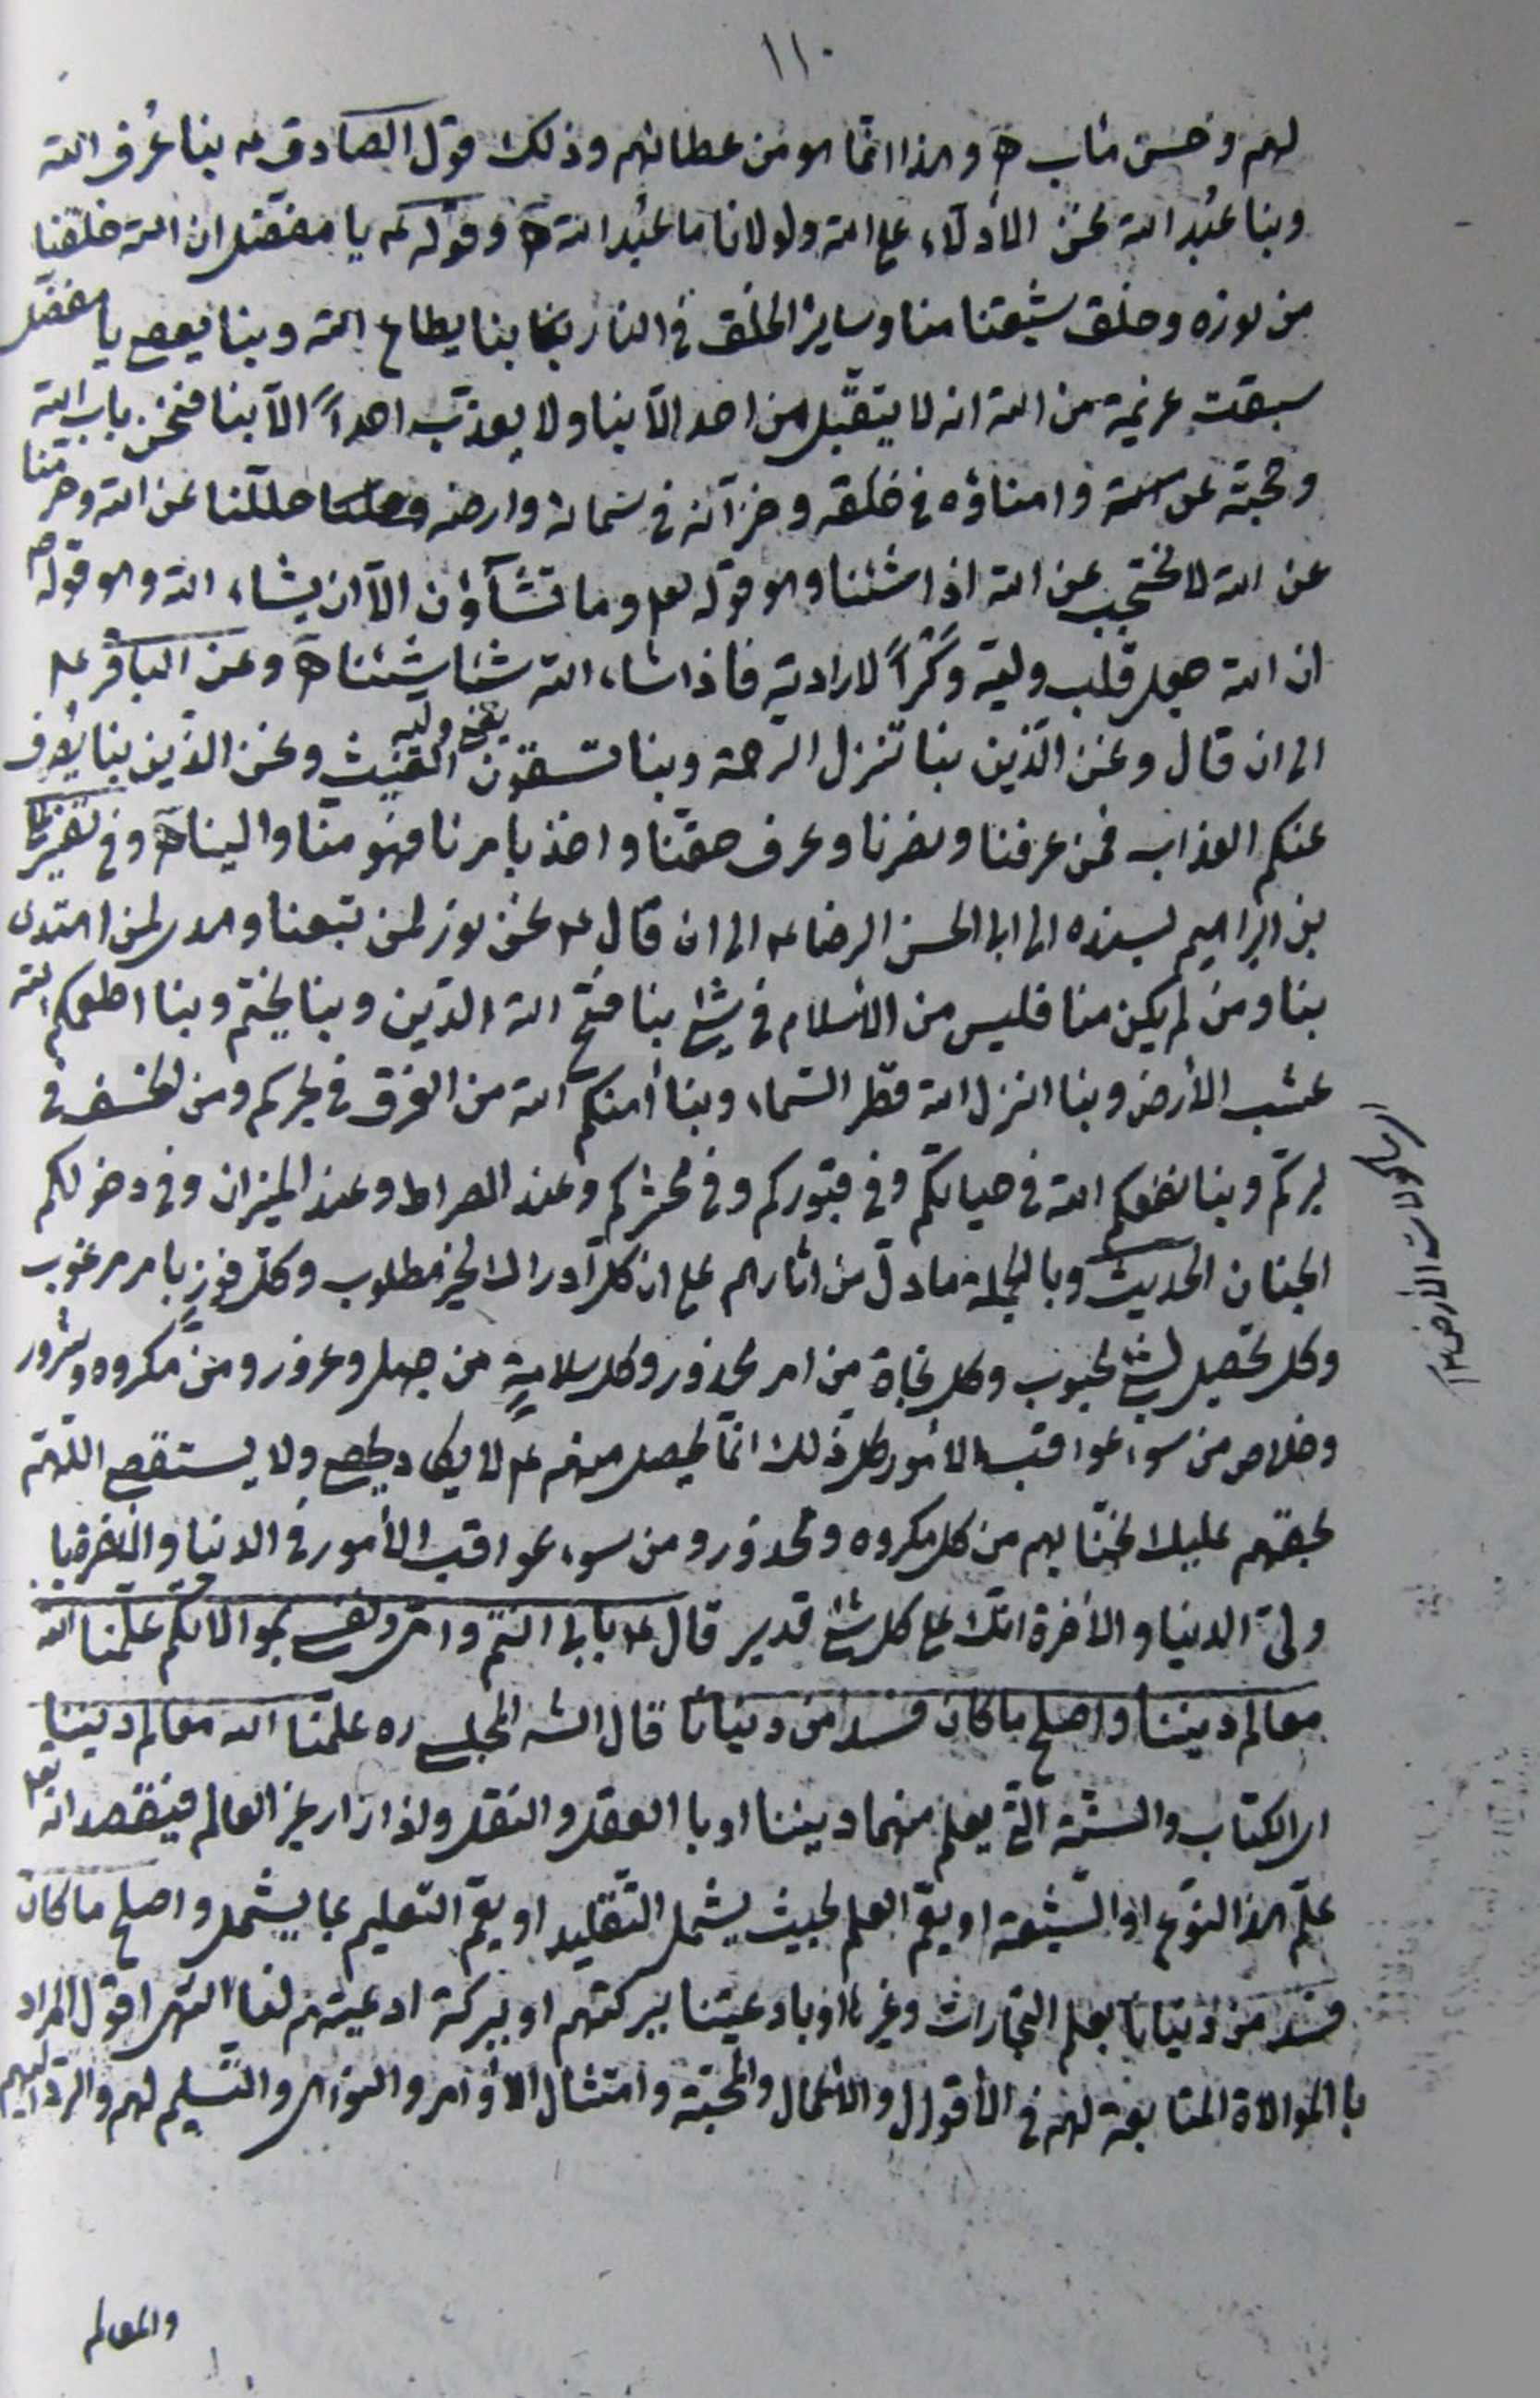 ١١٠
لهم وحسن مئاب ه وهذا انما هو من عطائهم وذلك قول الصادق ع بنا عُرف الله
وبنا عُبد الله نحن الأدلاء على الله ولولانا ما عُبد الله ه وقوله ع يا مفضل ان الله خلقنا
من نوره وخلق شيعتنا منا وساير الخلق في النار بنا يطاع الله وبنا يعصى يا مفضل
سبقت عزيمة من الله انه لا يتقبل من احد الّا بنا ولا يعذب احداً الّا بنا فنحن باب الله
وحجته وامناؤه في خلقه وخزآنه في سمائه وارضه حللنا عن الله وحرمنا
عن الله لا نحتجب عن الله اذا شئنا وهو قوله تعالى وما تشآؤن الّا ان يشاء الله وهو قوله ص
ان الله جعل قلب وليه وَكْراً لارادته فاذا شاء الله شئنا ه وعن الباقر ع
الى ان قال ونحن الّذين بنا تنزل الرحمة وبنا تسقون الغيث ونحن الذين بنا يصرف
عنكم العذاب فمن عرفنا ونصرنا وعرف حقنا واخذ بامرنا فهو منّا والينا ه وفي تفسير علي
بن ابراهيم بسنده الى ابي الحسن الرضا ع الى ان قال ع نحن نور لمن تبعنا وهدى لمن اهتدى
بنا ومن لم يكن منا فليس من الاسلام في شئ بنا فتح الله الدّين وبنا يختم وبنا اطعمكم الله
عشب الأرض وبنا انزل الله قطر السّماء وبنا أمنكم الله من الغرق في بحركم ومن الخسف في
بركم وبنا نفعكم الله في حياتكم وفي قبوركم وفي محشركم وعند الصراط وعند الميزان وفي دخولكم
الجنان الحديث وبالجملة ما دلّ من اثارهم على ان كل ادراك لخير مطلوب وكلّ فوزٍ بامر مرغوب
وكل تحصيل لشئ محبوب وكل نجاة من امر محذور وكل سلامةٍ من جهل وغرور ومن مكروه وشرور
وخلاص من سوء عواقب الامور كل ذلك انّما يحصل منهم ع لا يكاد يحصى ولا يستقصى اللّهم
بحقهم عليك نجّنا بهم من كل مكروه ومحذور ومن سوء عواقب الأمور في الدنيا والاخرة يا
ولي الدنيا والأخرة انّك على كل شئ قدير قال ع بابى انتم وامّى ونفسى بموالاتكم علّمنا الله
معالم ديننا واصلح ما كان فسد من دنيانا قال الشه المجلسى ره علّمنا الله معالم ديننا
اى الكتاب والسنّة التي يعلم منهما ديننا او با العقل والنقل واذا زار غير العالم فيقصد انه تعالى
علّم هذا النوع او الشيعة او يعمّ العلم بحيث يشمل التقليد او يعمّ التعليم بما يشمل واصلح ما كان
فسد من دنيانا بعلم التجارات وغيرها او بادعيتنا ببركتهم او ببركة ادعيتهم لنا انتهى اقول المراد
با الموالاة المتابعة لهم في الأقوال والاعمال والمحبّة وامتثال الأوامر والنواهى والتسليم لهم والردّ اليهم
والمعالم
اى ماكولات الأرض ١٢